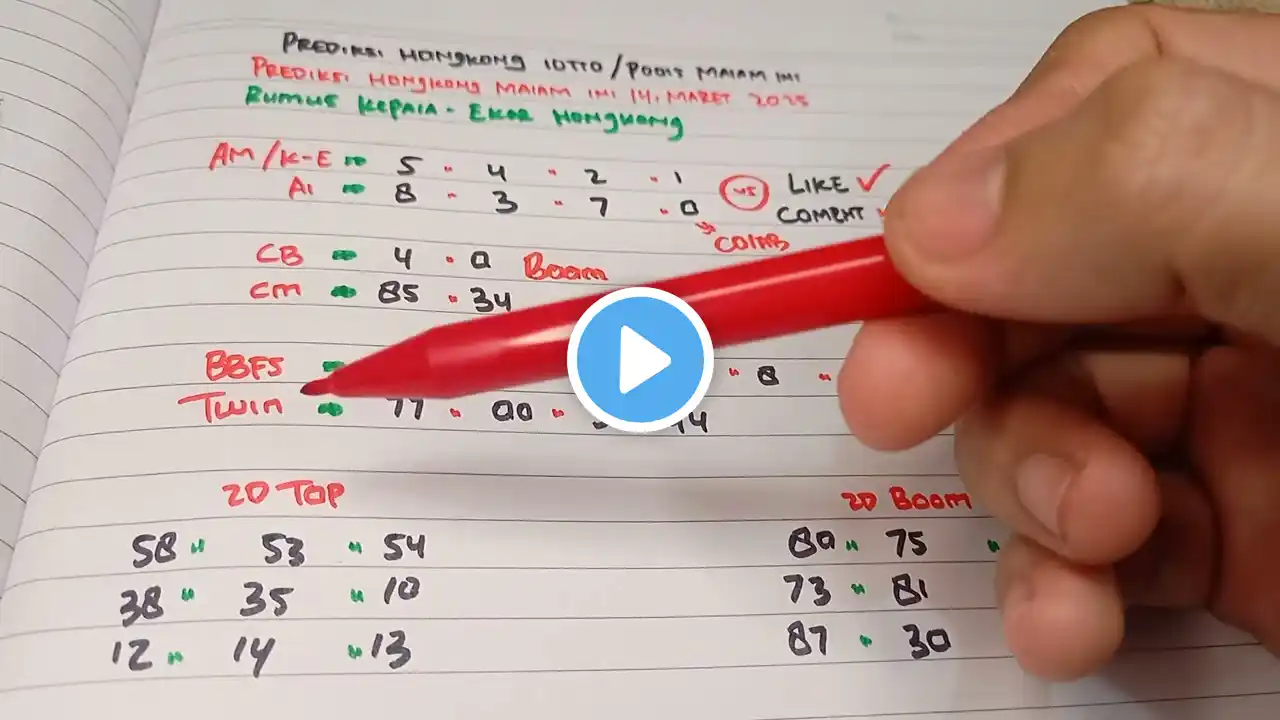 PREDIKSI HONGKONG LOTTO / POOLS MALAM INI
PREDIKSI HONGKONG MALAM INI 14, MARET 2025
RUMUS KEPALA - EKOR HONGKONG
AM/K-E 5 4 2 1
AI 8 3 7 0
VS LIKE ✓
COMENT
COLAB
CB 4 0 BOOM
CM 85 34
BBFS 8
TWIN 77 00 44
2D TOP
58 53 54
38 35 10
12 14 13
2D BOOM
80 75
73 81
87 30